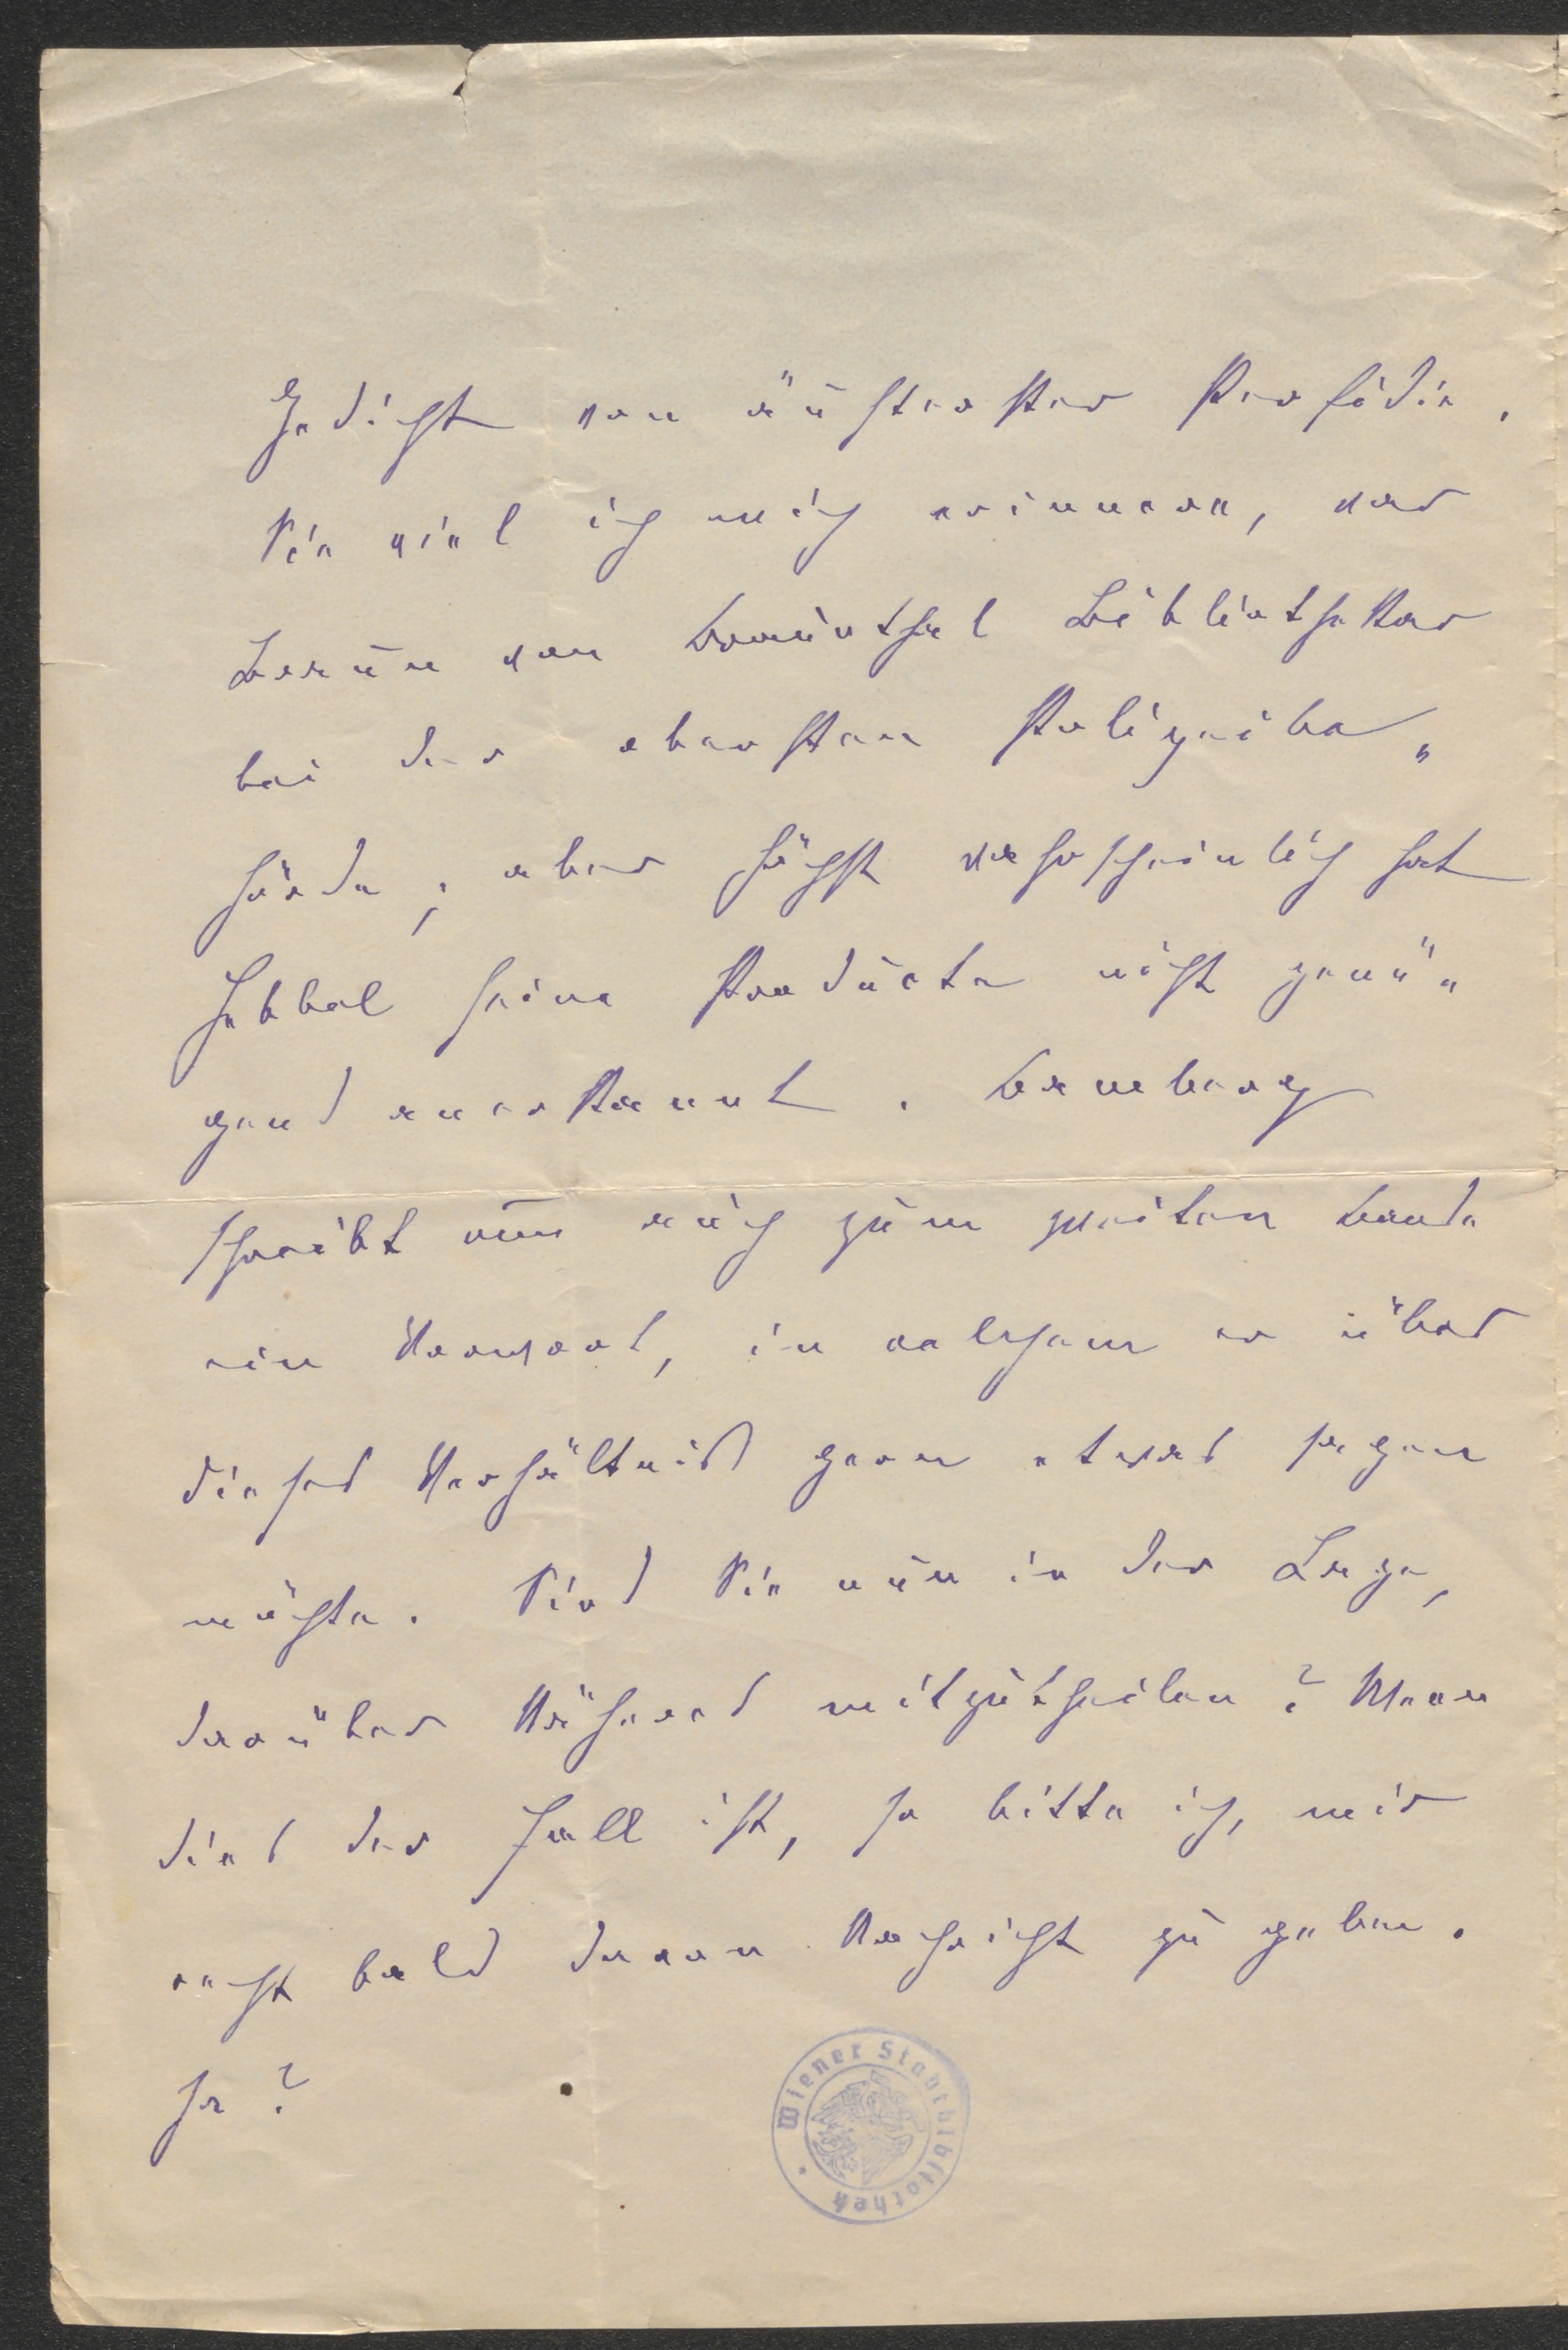 Gedicht von äußerster Perfidie.
So viel ich mich erinnere, war
Braun von Braunthal Bibliothekar
bei der obersten Polizeibe„
hörde; aber höchst wahrscheinlich hat
Hebbel seine Producte nicht genü„
gend anerkannt. Bamberg
schreibt nun auch zum zweiten Bande
ein Vorwort, in welchem er über
dieses Verhältniß gern etwas sagen
möchte. Sind Sie nun in der Lage,
darüber Näheres mitzutheilen? Wenn
dies der Fall ist, so bitte ich, mir
recht bald davon Nachricht zu geben.
Ja?
Wiener Stadtbibliothek